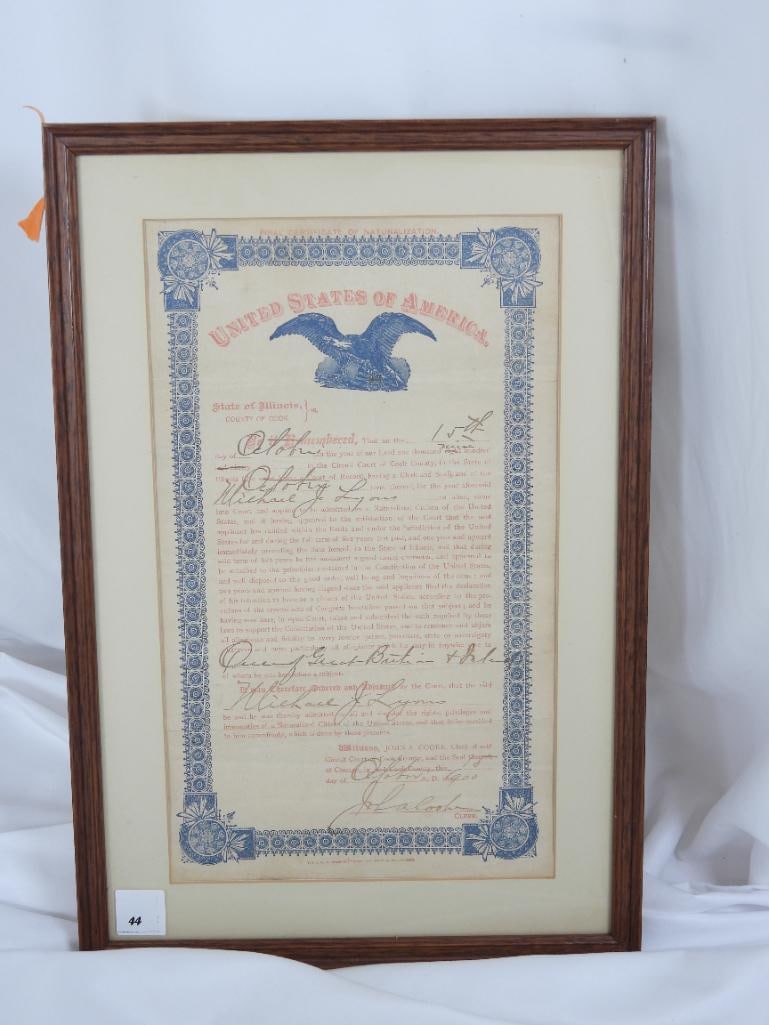 FINAL CERTIFICATE OF NATURALIZATION.
UNITED STATES OF AMERICA.
State of Illinois, } ss.
COUNTY OF COOK.
Be it Remembered, That on the 15th
day of October in the year of our Lord one thousand hundred
in the Circuit Court of Cook County, in the State of
Illinois
October term thereof, for the year aforesaid
Michael J. Lyons an alien, came
into Court, and applied to be admitted as a Naturalized Citizen of the United
States, and it having appeared to the satisfaction of the Court that the said
applicant has resided within the limits and under the jurisdiction of the United
States for and during the full term of five years last past, and one year and upward
immediately preceding the date hereof, in the State of Illinois, and that during
said term of five years he has sustained a good moral character, and appeared to
be attached to the principles contained in the Constitution of the United States,
and well disposed to the good order, well being and happiness of the same; and
two years and upward having elapsed since the said applicant filed the declaration
of his intention to become a citizen of the United States, according to the pro-
visions of the several acts of Congress heretofore passed on that subject; and he
having
laws to support the Constitution of the United States, and to renounce and abjure
all allegiance and fidelity to every foreign prince, potentate, state or sovereignty
whatever and more particularly all allegiance which he may in anywise owe to
Queen of Great Britain & Ireland
of whom he was heretofore a subject.
It was Therefore Ordered and Adjudged by the Court, that the said
Michael J. Lyons
be and he was thereby admitted to all and singular the rights, privileges and
immunities of a Naturalized Citizen of the United States, and that
to him accordingly, which is done by these presents.
Witness, JOHN A. COOKE, Clerk of said
Circuit Court of Cook County, and the Seal thereof,
at Chicago, in said Cook County, this
day of October A. D. 1900
John A Cooke
CLERK.
44